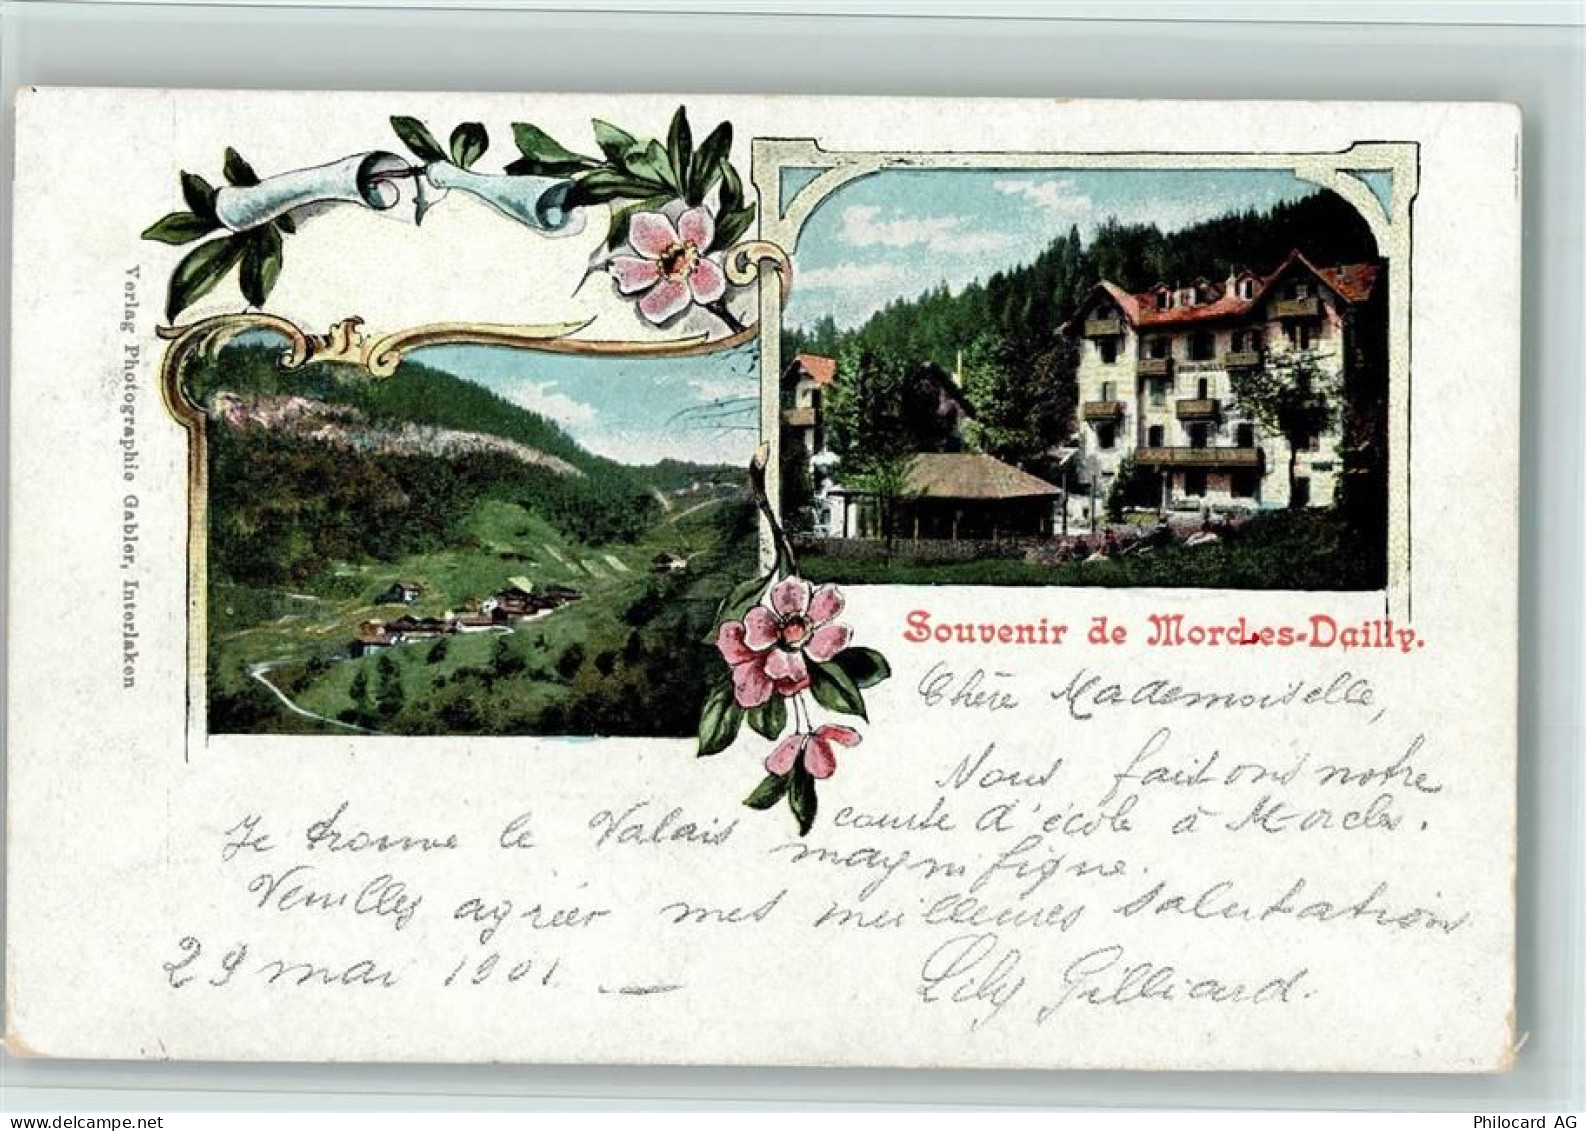 Verlag Photographie Gabler, Interlaken
Souvenir de Morcles-Dailly.
Chère Mademoiselle,
Nous faisons notre
course d'école à Morcles.
Je trouve le Valais magnifique.
Veuillez agréer mes meilleures salutations
29 mai 1901.
Lily Gilliard.
delcampe.net
Philocard AG